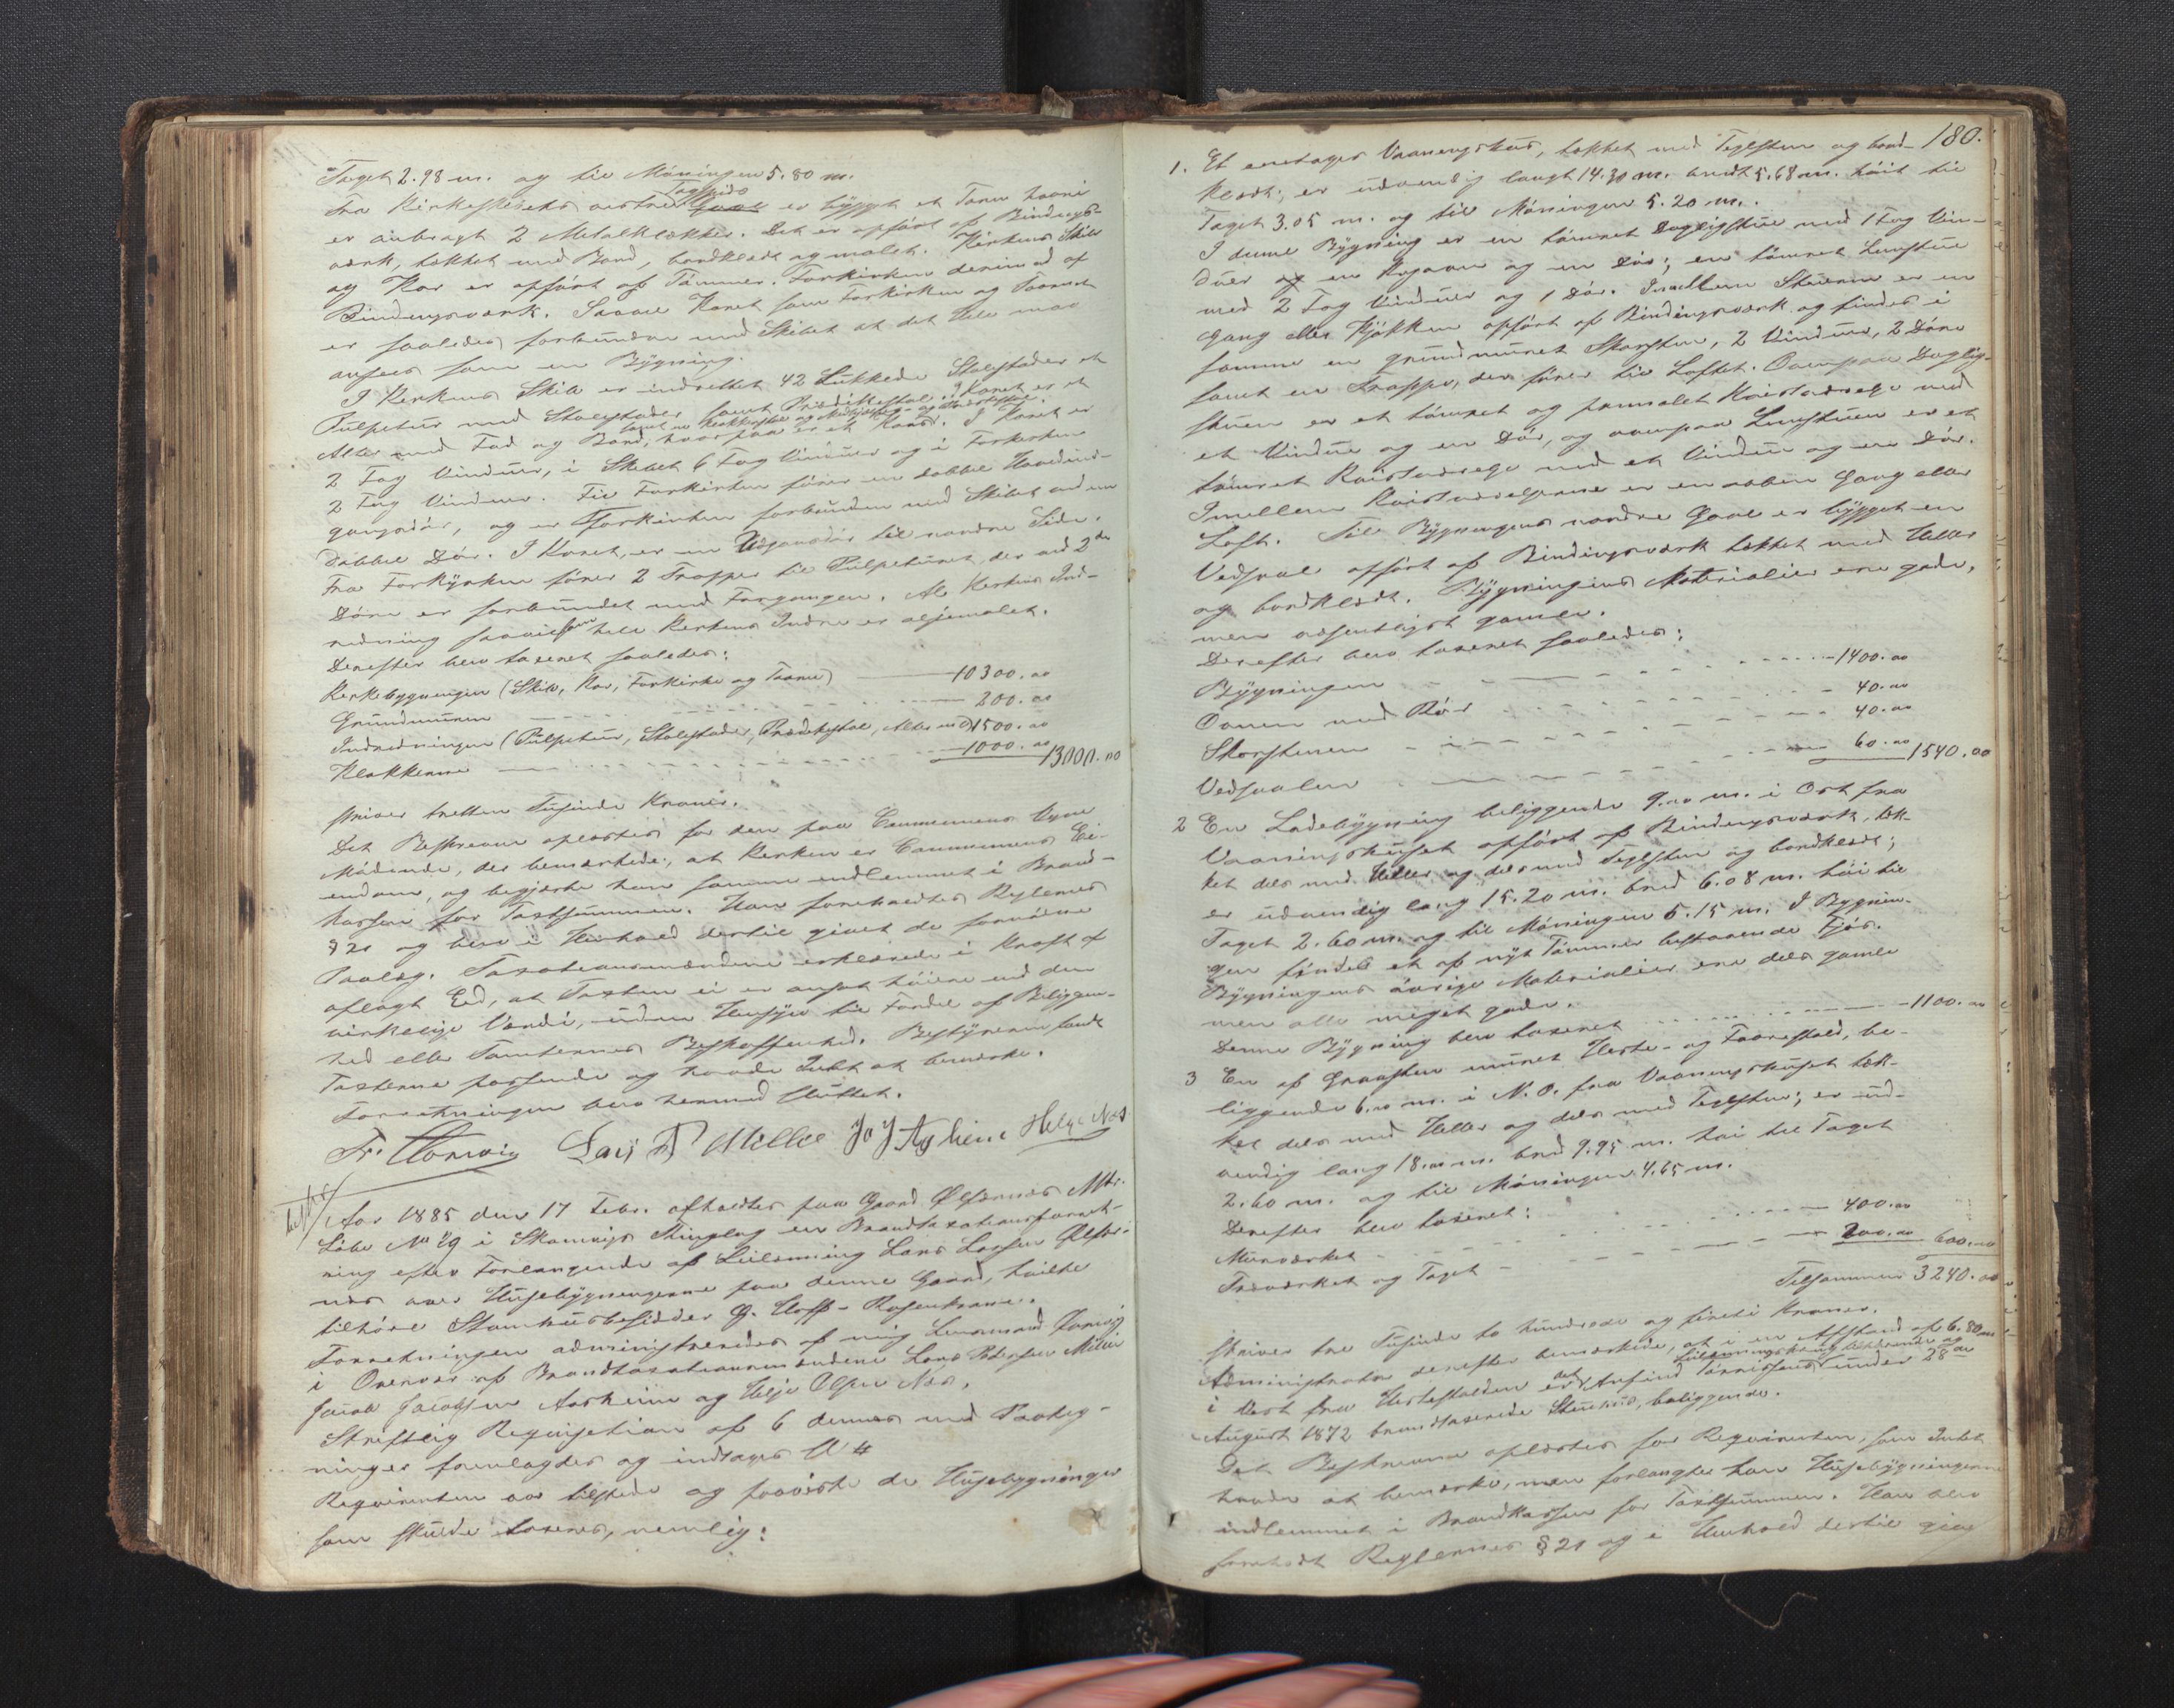 Taget 2.98 m. og til Møningen 5.80 m.
Fra Kirkeskibets vestre Gavl Tagside er bygget et Taarn hvori
er anbragt 2 Metalklokker. Det er opført af Bindings-
værk, tækket med Bord, bordklædt og malet. Kirkens Skib
og Kor er opført af Tømmer. Forkirken derimod af
Bindingsværk. Saavel Koret som Forkirken og Taarnet
er saaledes forbunden med Skibet at det Hele maa
ansees som en Bygning.
I Kirkens Skib er indrettet 42 Lukkede Stolestader et
Pulpetur med Stolestader samt Prædikestol. I Koret er et
Alter med Fod og Bord, hvorpaa er et Kors. I Koret er
2 Fag Vinduer, i Skibet 6 Fag Vinduer og i Forkirken
2 Fag Vinduer. Til Forkirken fører en dobbel Hovedind-
gangsdør, og er Forkirken forbunden med Skibet ved en
dobbel Dør. I Koret er en Udgangsdør til nordre Side.
Fra Forkirken fører 2 Trapper til Pulpeturet, der ved 2de
Døre er forbundet med Forgangen. Al Kirkens Ind-
redning saavelsom hele Kirkens Indre er oljemalet.
Derefter blev taxeret saaledes:
Kirkebygningen (Skib, Kor, Forkirke og Taarn) 10300.00
Grundmuren 200.00
Indredningen (Pulpetur, Stolestader, Prædikestol, Alter m D) 1500.00
Klokkerne 1000.00 13000.00
skriver tretten Tusinde Kroner.
Det Beskrevne oplæstes for den paa Communens Vegne
Mødende, der bemærkede, at Kirken er Communens Ei-
endom, og begjærte han samme indlemmet i Brand-
kassen for Taxtsummen. Han foreholdtes Reglernes
§ 21 og blev i Henhold dertil givet de fornødne
Paalæg. Taxationsmændene erklærede i Kraft af
aflagt Ed, at Taxten ei er ansat høiere end den
virkelige Værdi, uden Hensyn til Fordel af Beliggen-
hed eller Tomternes Beskaffenhed. Bestyreren fandt
Taxterne passende og havde Intet at bemærke.
Forretningen blev hermed sluttet.
Fr. Lars P Mille Jo J Asheim Helge Næs
Aar 1885 den 17 Febr. afholdtes paa Gaard Ølfarnæs Mtr.
Løbe No 29 i Skaanevigs Thinglag en Brandtaxationsforret-
ning efter Forlangende af Leilænding Lars Larsen Ølfar-
næs over Husebygningerne paa denne Gaard, hvilke
tilhøre Stamhusbesidder G. Hoff-Rosenkrone.
Forretningen administreredes af mig Lensmand
i Overvær af Brandtaxationsmændene Lars Pedersen Milie
Jacob Jacobsen Aasheim og Helje Olsen Næs.
Skriftlig Requisition af 6 dennes med Paateg-
ninger fremlagdes og indtages No 4
Requirenten var tilstede og paaviste de Husebygninger
som skulde taxeres, nemlig:
180.
1. Et enetages Vaaningshus, tækket med Teglsten og bord-
klædt; er udvendig langt 14.30 m. bredt 5.68 m. høit til
Taget 3.05 m. og til Møningen 5.20 m.
I denne Bygning er en tømret Dagligstue med 1 Fag Vin-
duer og en Kogeovn og en Dør; en tømret Lemstue
med 2 Fag Vinduer og 1 Dør. Imellem Stuerne er en
Gang eller Kjøkken opført af Bindingsværk og findes i
samme en grundmuret Skorsten, 2 Vinduer, 2 Døre
samt en Trappe, der fører til Loftet. Ovenpaa Daglig-
stuen er et tømret og panelet Kvistværelse med
et Vindue og en Dør, og ovenpaa Lemstuen er et
tømret Kvistværelse med et Vindue og en Dør.
Imellem Kvistværelserne er en aaben Gang eller
Loft. Til Bygningens nordre Gavl er bygget en
Vedsval opført af Bindingsværk tækket med Heller
og bordklædt. Bygningens Materialier ere gode,
men væsentligst gamle.
Derefter blev taxeret saaledes:
Bygningen 1400.00
Ovnen med Rør 40.00
Skorstenen 40.00
Vedsvalen 60.00 1540.00
2 En Ladebygning beliggende 9.00 m. i Ost fra
Vaaningshuset opført af Bindingsværk, tæk-
ket dels med Heller og dels med Teglsten og bordklædt;
er udvendig lang 15.20 m. bred 6.08 m. høi til
Taget 2.60 m. og til Møningen 5.15 m. I Bygnin-
gen findes et af nyt Tømmer bestaaende Fjøs.
Bygningens øvrige Materialier ere dels gamle
men alle meget gode.
Denne Bygning blev taxeret 1100.00
3 En af Graasten muret Heste- og Faarestald, be-
liggende 6.00 m. i N.O. fra Vaaningshuset tæk-
ket dels med Heller og dels med Teglsten; er ud-
vendig lang 18.00 m. bred 9.95 m. høi til Taget
2.60 m. og til Møningen 4.65 m.
Derefter blev taxeret:
Murværket 400.00
Træværket og Taget 200.00 600.00
Tilsammen 3240.00
skriver tre Tusinde to hundrede og fireti Kroner.
Administrator derefter bemærkede, at i en Afstand af 6.80 m
i Vest fra Hestestalden er det Leilænding Anfind Tørrisens tilhørende og under 28de
August 1872 brandtaxerede Stuehus, beliggende.
Det Beskrevne oplæstes for Requirenten, som Intet
havde at bemærke, men forlangte han Husebygningerne
indlemmet i Brandkassen for Taxtsummen. Han blev
foreholdt Reglernes § 21 og i Henhold dertil giv